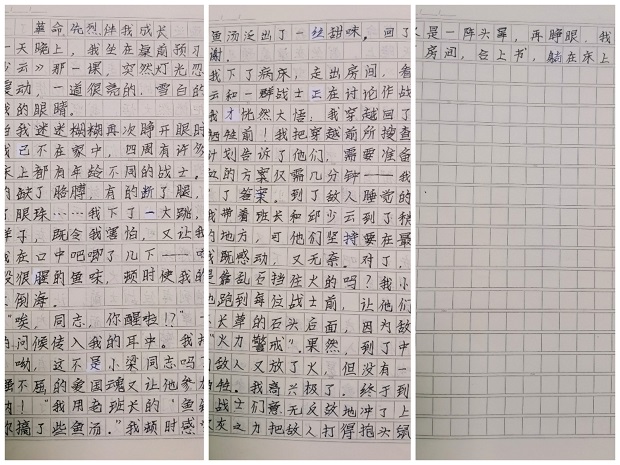 革命先烈伴我成长
一天晚上,我坐在桌前预习
少云》那一课,突然灯光忽
晃动,一道很亮的、雪白的
我的眼睛。
当我迷迷糊糊再次睁开眼时
我已不在家中,四周有许多
床上都有年龄不同的战士。
的缺了胳膊,有的断了腿,
了眼珠……我下了一大跳,
样子,既令我害怕,又让我
我在口中吧唧了几下——
股很腥的鱼味,顿时使我的
江倒海。
"唉,同志,你醒啦!?"
的问候传入我的耳中。我
呦,这不是小梁同志吗
强不屈的爱国魂又让他参
呐!"我用老班长的'鱼
你搞了些鱼汤。"我顿时感
鱼汤泛出了一丝甜味。回了
谢。
我下了病床,走出房间,看
云和一群战士正在讨论作战
我才恍然大悟:我穿越回了
牺牲前!我把穿越前所搜查
计划告诉了他们,需要准备
的方案仅需几分钟——我
了答案。到了敌人睡觉的
我带着班长和邱少云到了
的地方,可他们坚持要在最
我既感动,又无奈。对了,
是能乱石挡住火的吗?我小
地跑到每位战士前,让他们
长草的石头后面,因为敌
"火力警戒"。果然,到了中
敌人又放了火,但没有一
牺牲。我高兴极了,终于到
战士们毫无反顾地冲了上
之力把敌人打得抱头鼠
又是一阵头晕,再睁眼,我
房间,合上书,躺在床上